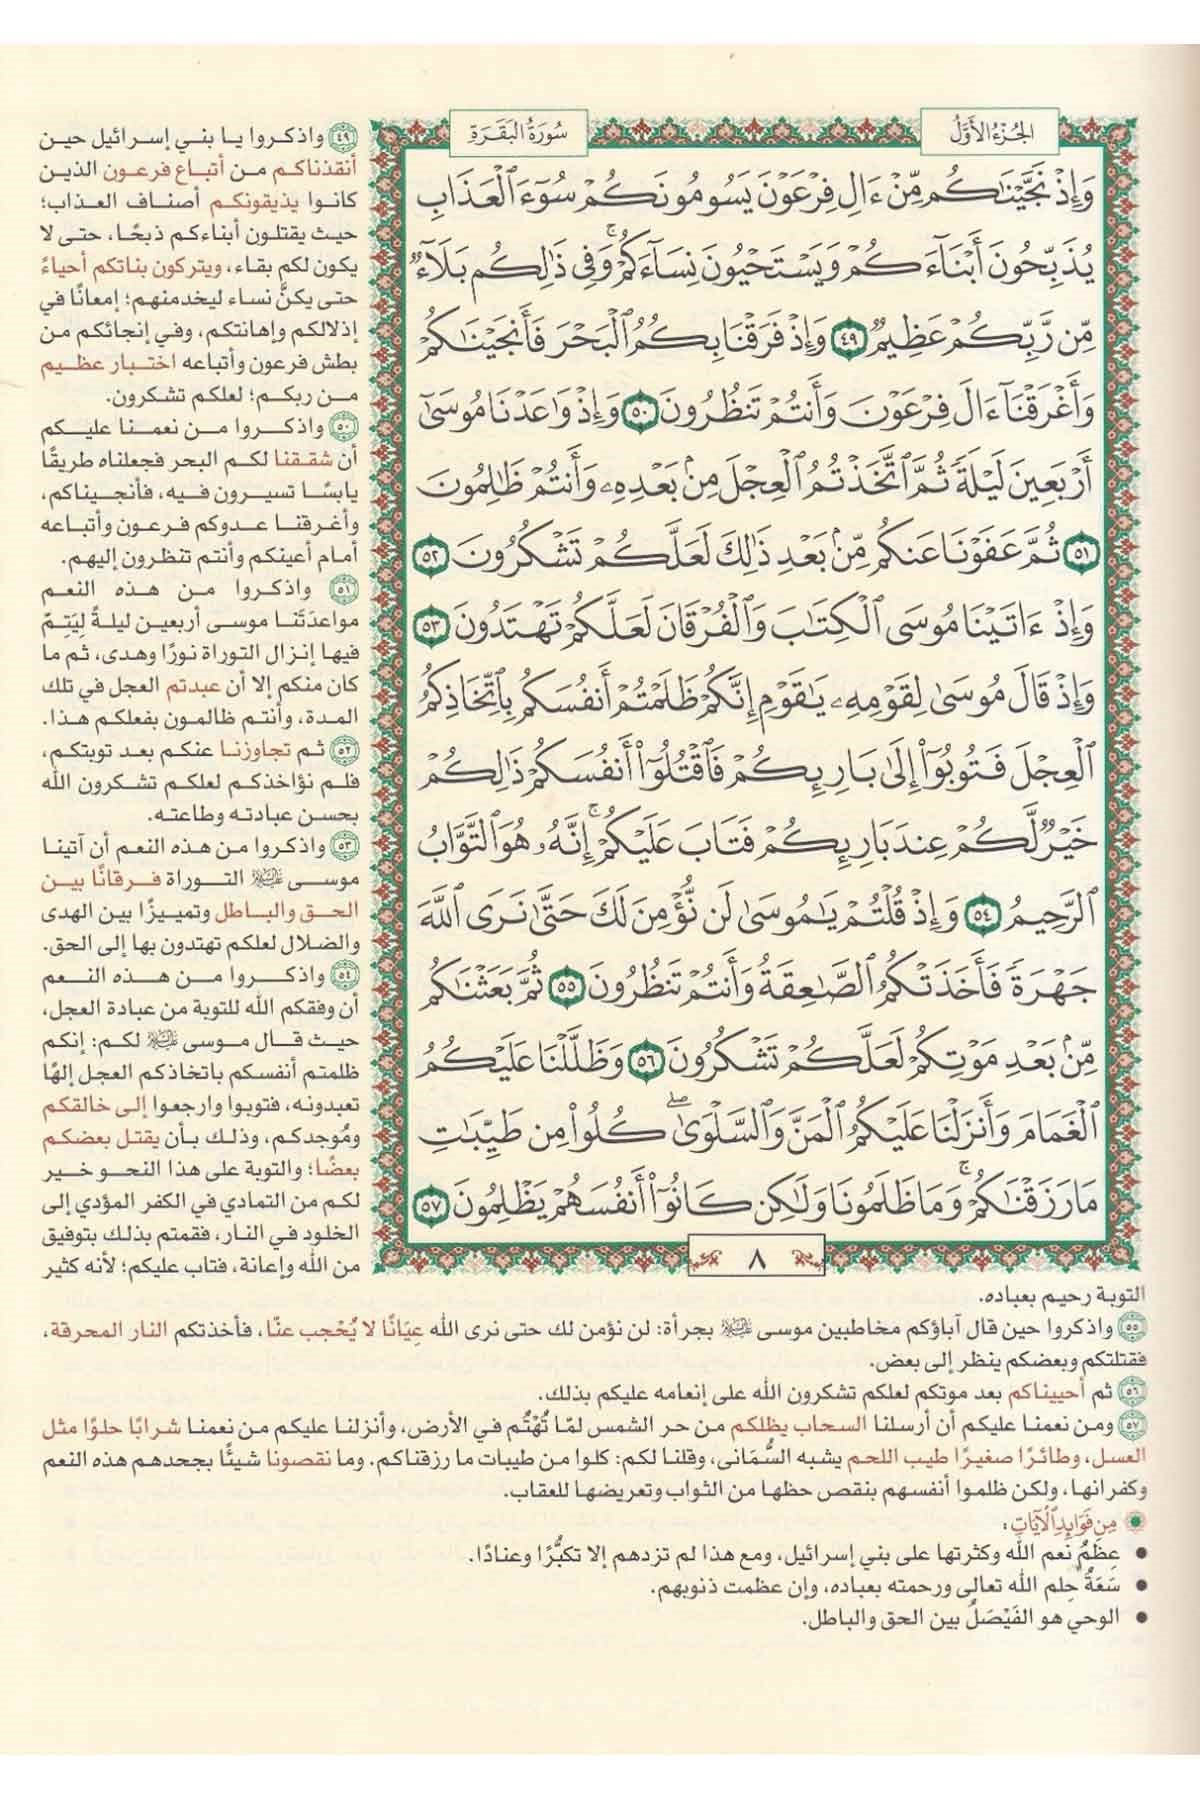 الجزء الأول
سورة البقرة
وَإِذۡ نَجَّيۡنَٰكُم مِّنۡ ءَالِ فِرۡعَوۡنَ يَسُومُونَكُمۡ سُوٓءَ ٱلۡعَذَابِ
يُذَبِّحُونَ أَبۡنَآءَكُمۡ وَيَسۡتَحۡيُونَ نِسَآءَكُمۡۚ وَفِي ذَٰلِكُم بَلَآءٞ
مِّن رَّبِّكُمۡ عَظِيمٞ ٤٩ وَإِذۡ فَرَقۡنَا بِكُمُ ٱلۡبَحۡرَ فَأَنجَيۡنَٰكُمۡ
وَأَغۡرَقۡنَآ ءَالَ فِرۡعَوۡنَ وَأَنتُمۡ تَنظُرُونَ ٥٠ وَإِذۡ وَٰعَدۡنَا مُوسَىٰٓ
أَرۡبَعِينَ لَيۡلَةٗ ثُمَّ ٱتَّخَذۡتُمُ ٱلۡعِجۡلَ مِنۢ بَعۡدِهِۦ وَأَنتُمۡ ظَٰلِمُونَ
٥١ ثُمَّ عَفَوۡنَا عَنكُم مِّنۢ بَعۡدِ ذَٰلِكَ لَعَلَّكُمۡ تَشۡكُرُونَ ٥٢
وَإِذۡ ءَاتَيۡنَا مُوسَى ٱلۡكِتَٰبَ وَٱلۡفُرۡقَانَ لَعَلَّكُمۡ تَهۡتَدُونَ ٥٣
وَإِذۡ قَالَ مُوسَىٰ لِقَوۡمِهِۦ يَٰقَوۡمِ إِنَّكُمۡ ظَلَمۡتُمۡ أَنفُسَكُم بِٱتِّخَاذِكُمُ
ٱلۡعِجۡلَ فَتُوبُوٓاْ إِلَىٰ بَارِئِكُمۡ فَٱقۡتُلُوٓاْ أَنفُسَكُمۡ ذَٰلِكُمۡ
خَيۡرٞ لَّكُمۡ عِندَ بَارِئِكُمۡ فَتَابَ عَلَيۡكُمۡۚ إِنَّهُۥ هُوَ ٱلتَّوَّابُ
ٱلرَّحِيمُ ٥٤ وَإِذۡ قُلۡتُمۡ يَٰمُوسَىٰ لَن نُّؤۡمِنَ لَكَ حَتَّىٰ نَرَى ٱللَّهَ
جَهۡرَةٗ فَأَخَذَتۡكُمُ ٱلصَّٰعِقَةُ وَأَنتُمۡ تَنظُرُونَ ٥٥ ثُمَّ بَعَثۡنَٰكُم
مِّنۢ بَعۡدِ مَوۡتِكُمۡ لَعَلَّكُمۡ تَشۡكُرُونَ ٥٦ وَظَلَّلۡنَا عَلَيۡكُمُ
ٱلۡغَمَامَ وَأَنزَلۡنَا عَلَيۡكُمُ ٱلۡمَنَّ وَٱلسَّلۡوَىٰۖ كُلُواْ مِن طَيِّبَٰتِ
مَا رَزَقۡنَٰكُمۡۚ وَمَا ظَلَمُونَا وَلَٰكِن كَانُوٓاْ أَنفُسَهُمۡ يَظۡلِمُونَ ٥٧
٨
٤٩ واذكروا يا بني إسرائيل حين
أنقذناكم من أتباع فرعون الذين
كانوا يذيقونكم أصناف العذاب؛
حيث يقتلون أبناءكم ذبحًا، حتى لا
يكون لكم بقاء، ويتركون بناتكم أحياءً
حتى يكنَّ نساء ليخدمنهم؛ إمعانًا في
إذلالكم وإهانتكم، وفي إنجائكم من
بطش فرعون وأتباعه اختبار عظيم
من ربكم؛ لعلكم تشكرون.
٥٠ واذكروا من نعمنا عليكم
أن شققنا لكم البحر فجعلناه طريقًا
يابسًا تسيرون فيه، فأنجيناكم،
وأغرقنا عدوكم فرعون وأتباعه
أمام أعينكم وأنتم تنظرون إليهم.
٥١ واذكروا من هذه النعم
مواعدَتَنا موسى أربعين ليلةً ليَتِمّ
فيها إنزال التوراة نورًا وهدى، ثم ما
كان منكم إلا أن عبدتم العجل في تلك
المدة، وأنتم ظالمون بفعلكم هذا.
٥٢ ثم تجاوزنا عنكم بعد توبتكم،
فلم نؤاخذكم لعلكم تشكرون الله
بحسن عبادته وطاعته.
٥٣ واذكروا من هذه النعم أن آتينا
موسى عليه السلام التوراة فرقانًا بين
الحق والباطل وتمييزًا بين الهدى
والضلال لعلكم تهتدون بها إلى الحق.
٥٤ واذكروا من هذه النعم
أن وفقكم الله للتوبة من عبادة العجل،
حيث قال موسى عليه السلام لكم: إنكم
ظلمتم أنفسكم باتخاذكم العجل إلهًا
تعبدونه، فتوبوا وارجعوا إلى خالقكم
ومُوجدكم، وذلك بأن يقتل بعضكم
بعضًا؛ والتوبة على هذا النحو خير
لكم من التمادي في الكفر المؤدي إلى
الخلود في النار، فقمتم بذلك بتوفيق
من الله وإعانة، فتاب عليكم؛ لأنه كثير
التوبة رحيم بعباده.
٥٥ واذكروا حين قال آباؤكم مخاطبين موسى عليه السلام بجرأة: لن نؤمن لك حتى نرى الله عِيَانًا لا يُحْجب عنّا، فأخذتكم النار المحرقة،
فقتلتكم وبعضكم ينظر إلى بعض.
٥٦ ثم أحييناكم بعد موتكم لعلكم تشكرون الله على إنعامه عليكم بذلك.
٥٧ ومن نعمنا عليكم أن أرسلنا السحاب يظلكم من حر الشمس لمّا تُهْتُم في الأرض، وأنزلنا عليكم من نعمنا شرابًا حلوًا مثل
العسل، وطائرًا صغيرًا طيب اللحم يشبه السُّمَانى، وقلنا لكم: كلوا من طيبات ما رزقناكم. وما نقصونا شيئًا بجحدهم هذه النعم
وكفرانها، ولكن ظلموا أنفسهم بنقص حظها من الثواب وتعريضها للعقاب.
مِن فَوَائِدِ الآيَاتِ:
• عِظَمُ نعم الله وكثرتها على بني إسرائيل، ومع هذا لم تزدهم إلا تكبُّرًا وعنادًا.
• سَعَةُ حِلم الله تعالى ورحمته بعباده، وإن عظمت ذنوبهم.
• الوحي هو الفَيْصَلُ بين الحق والباطل.